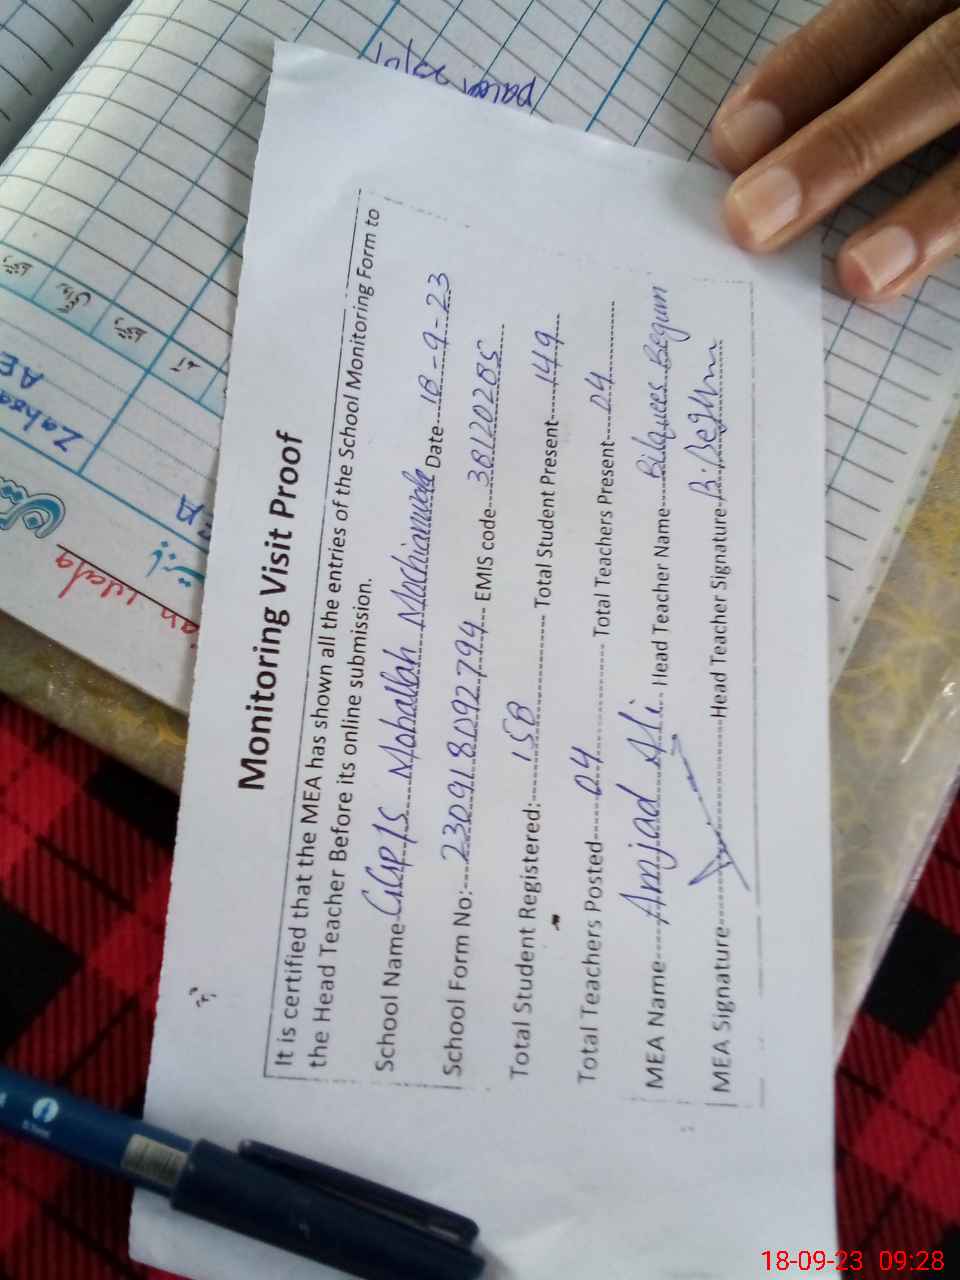 Monitoring Visit Proof
It is certified that the MEA has shown all the entries of the School Monitoring Form to
the Head Teacher Before its online submission.
School Name GGPS Mohallah Machianwala Date 18-9-23
School Form No:- 23091809 2794 EMIS code 38120285
Total Student Registered: 158 Total Student Present 149
Total Teachers Posted 04 Total Teachers Present 04
MEA Name Amjad Ali Head Teacher Name Bilquees Begum
MEA Signature Head Teacher Signature B.Begum
Zahra
AE
wala
18-09-23 09:28